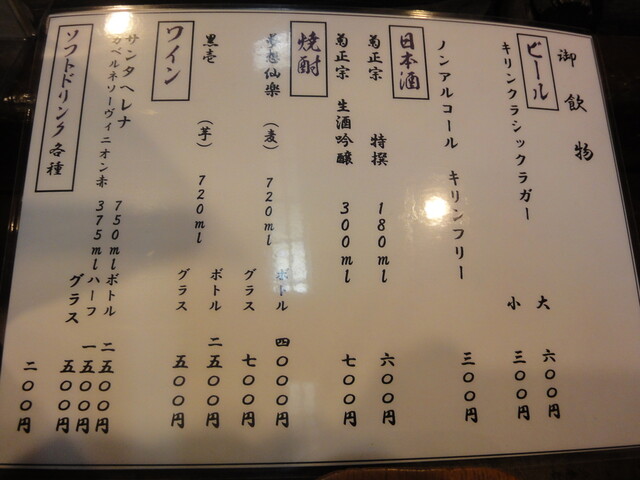 御飲物
ビール
キリンクラシックラガー 大 六〇〇円
小 三〇〇円
ノンアルコール キリンフリー 三〇〇円
日本酒
菊正宗 特撰 180ml 六〇〇円
菊正宗 生酒吟醸 300ml 七〇〇円
焼酎
夢想仙楽 (麦) 720ml ボトル 四〇〇〇円
グラス 七〇〇円
黒壱 (芋) 720ml ボトル 二五〇〇円
グラス 五〇〇円
ワイン
サンタヘレナ
カベルネソーヴィニオン赤 750mlボトル 二五〇〇円
375mlハーフ 一五〇〇円
グラス 五〇〇円
ソフトドリンク各種 二〇〇円